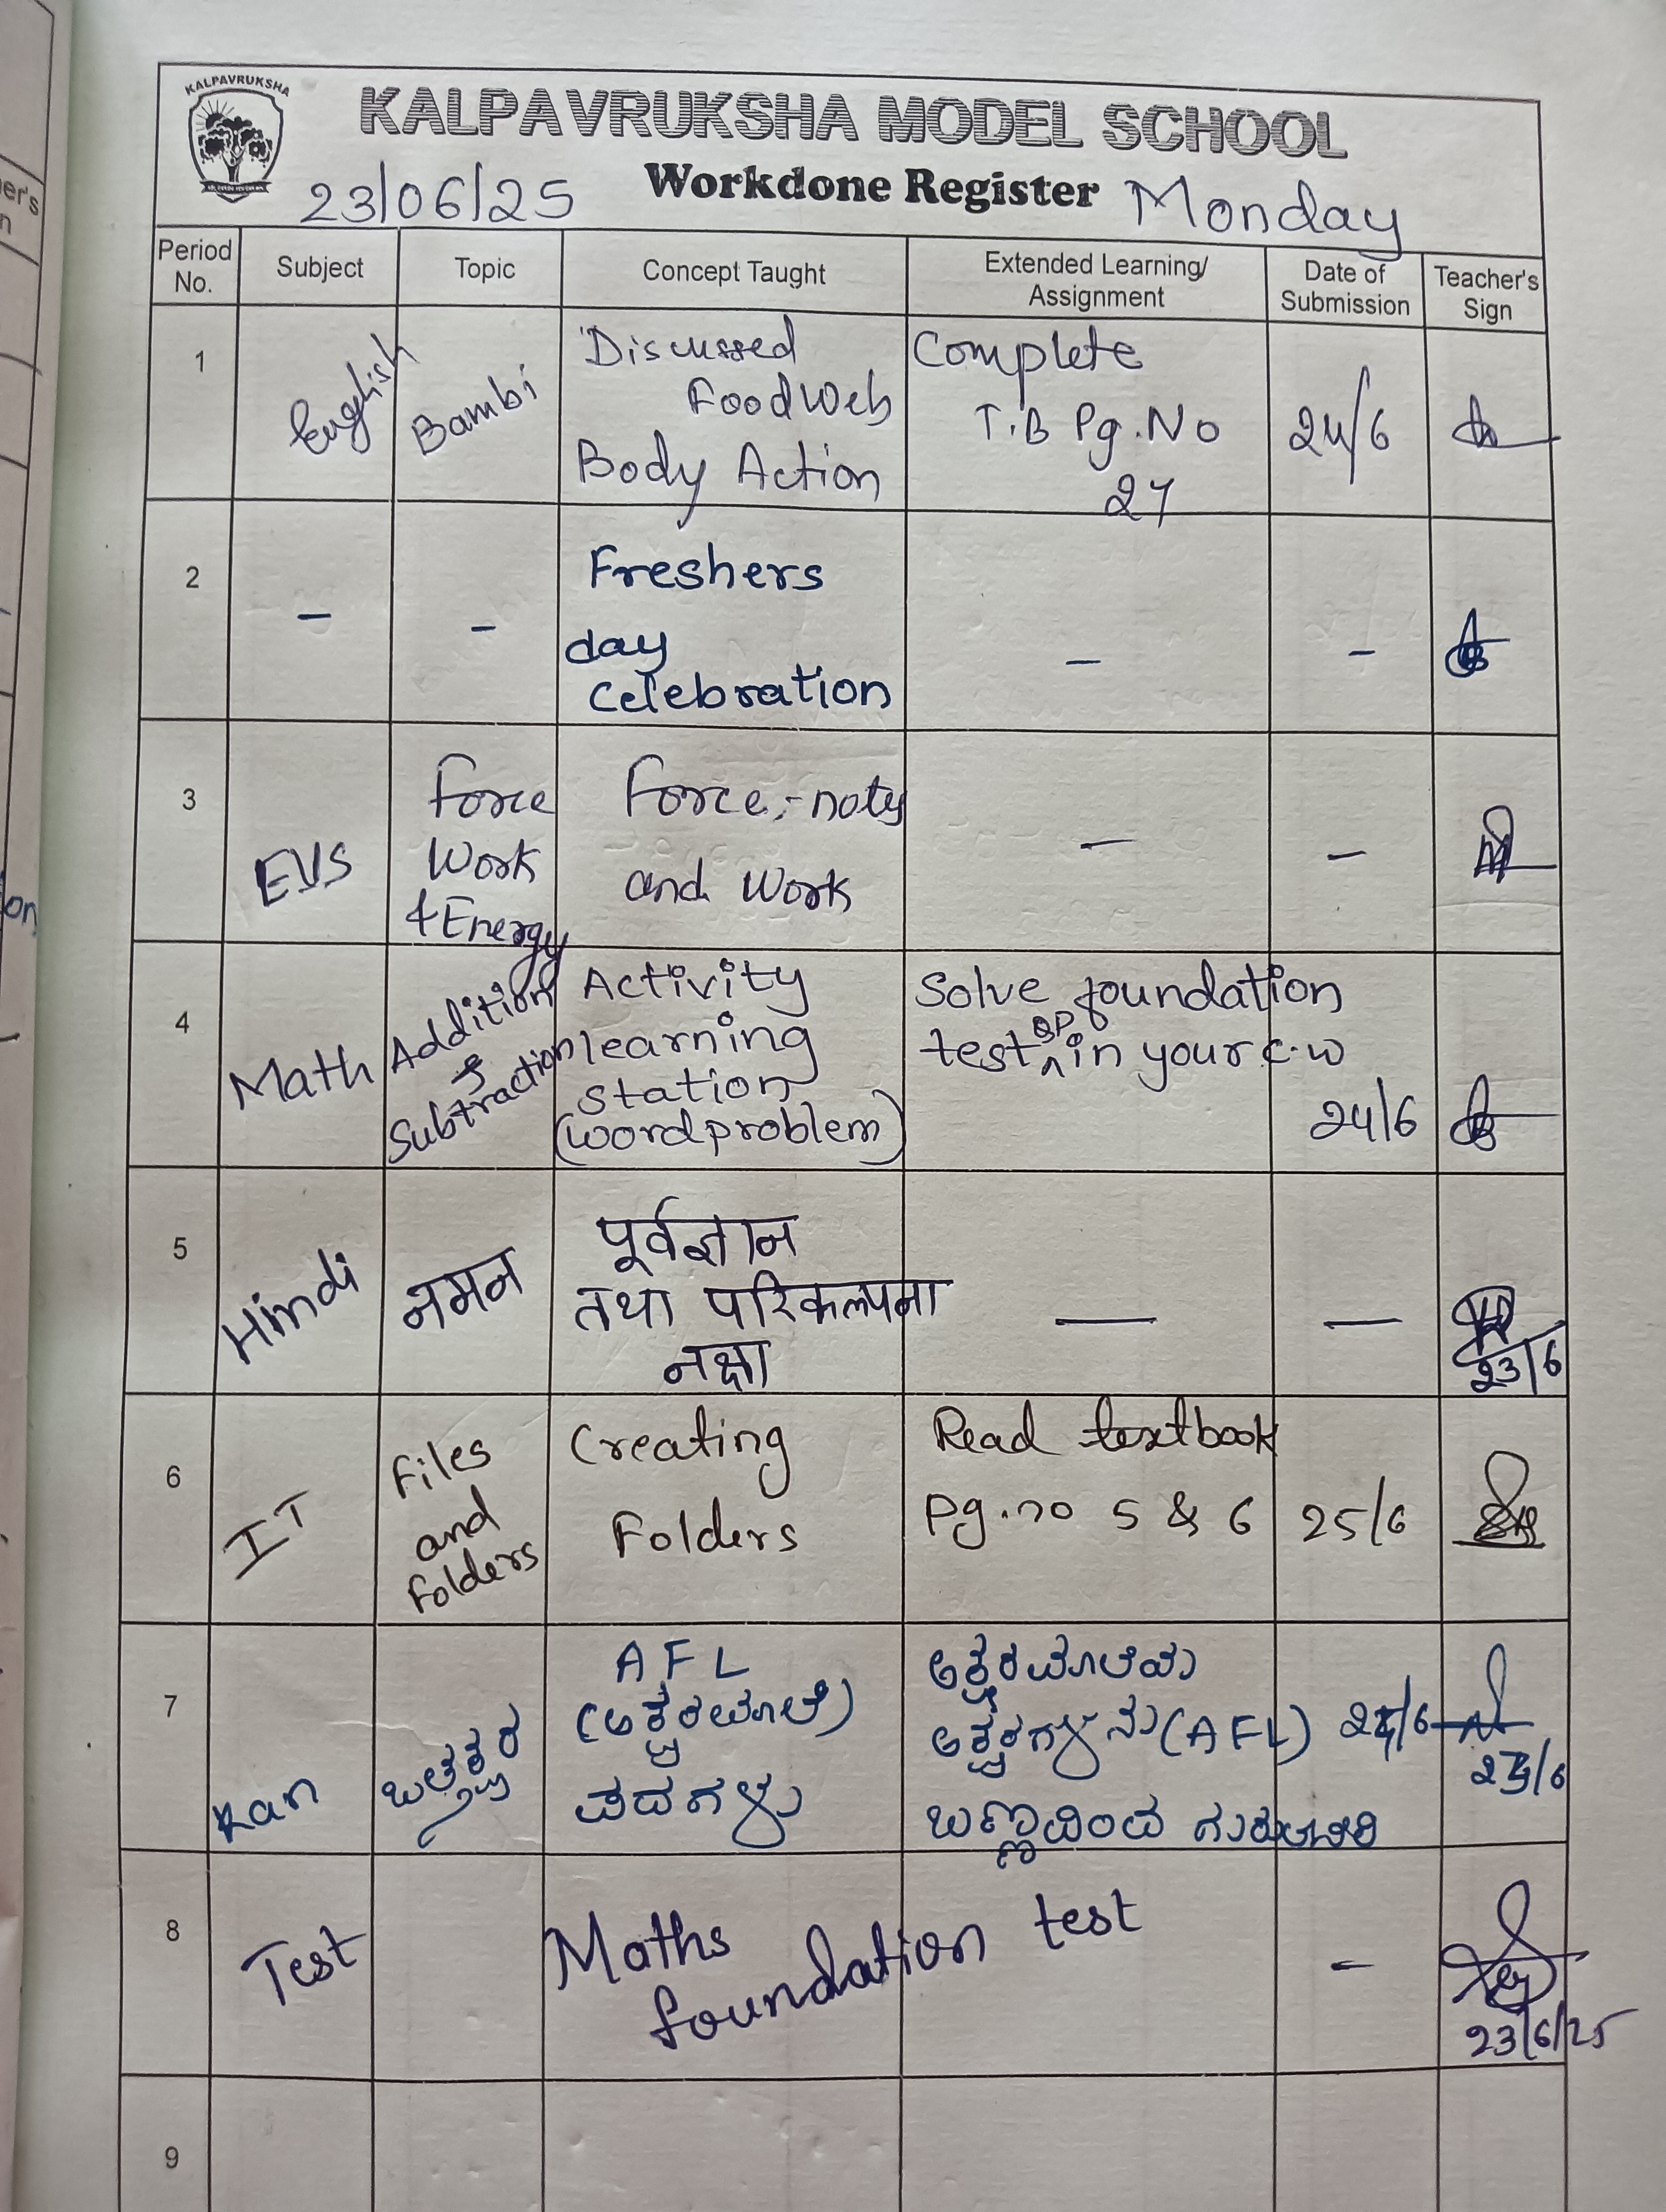 KALPAVRUKSHA
KALPAVRUKSHA MODEL SCHOOL
23/06/25 Workdone Register Monday
Period No. Subject Topic Concept Taught Extended Learning/ Assignment Date of Submission Teacher's Sign
1 English Bambi
Discussed
Food Web
Body Action
Complete
T.B Pg.No
27
24/6
2 - -
Freshers
day
celebration
- -
3 EVS
Force
Work
& Energy
Force, - notes
and Work
- -
4 Math
Addition
&
Subtraction
Activity
learning
station
(word problem)
Solve foundation
test QP in your c.w
24/6
5 Hindi नमन
पूर्वज्ञान
तथा परिकल्पना
नक्षा
- -
23/6
6 IT
Files
and
folders
Creating
Folders
Read textbook
pg.no 5 & 6
25/6
7 Kan ಒತ್ತಕ್ಷರ
AFL
(ಅಕ್ಷರಮಾಲೆ)
ಪದಗಳು
ಅಕ್ಷರಮಾಲೆಯ
ಅಕ್ಷರಗಳನು (AFL)
24/6
8 Test
Maths
foundation test
-
23/6/25
9